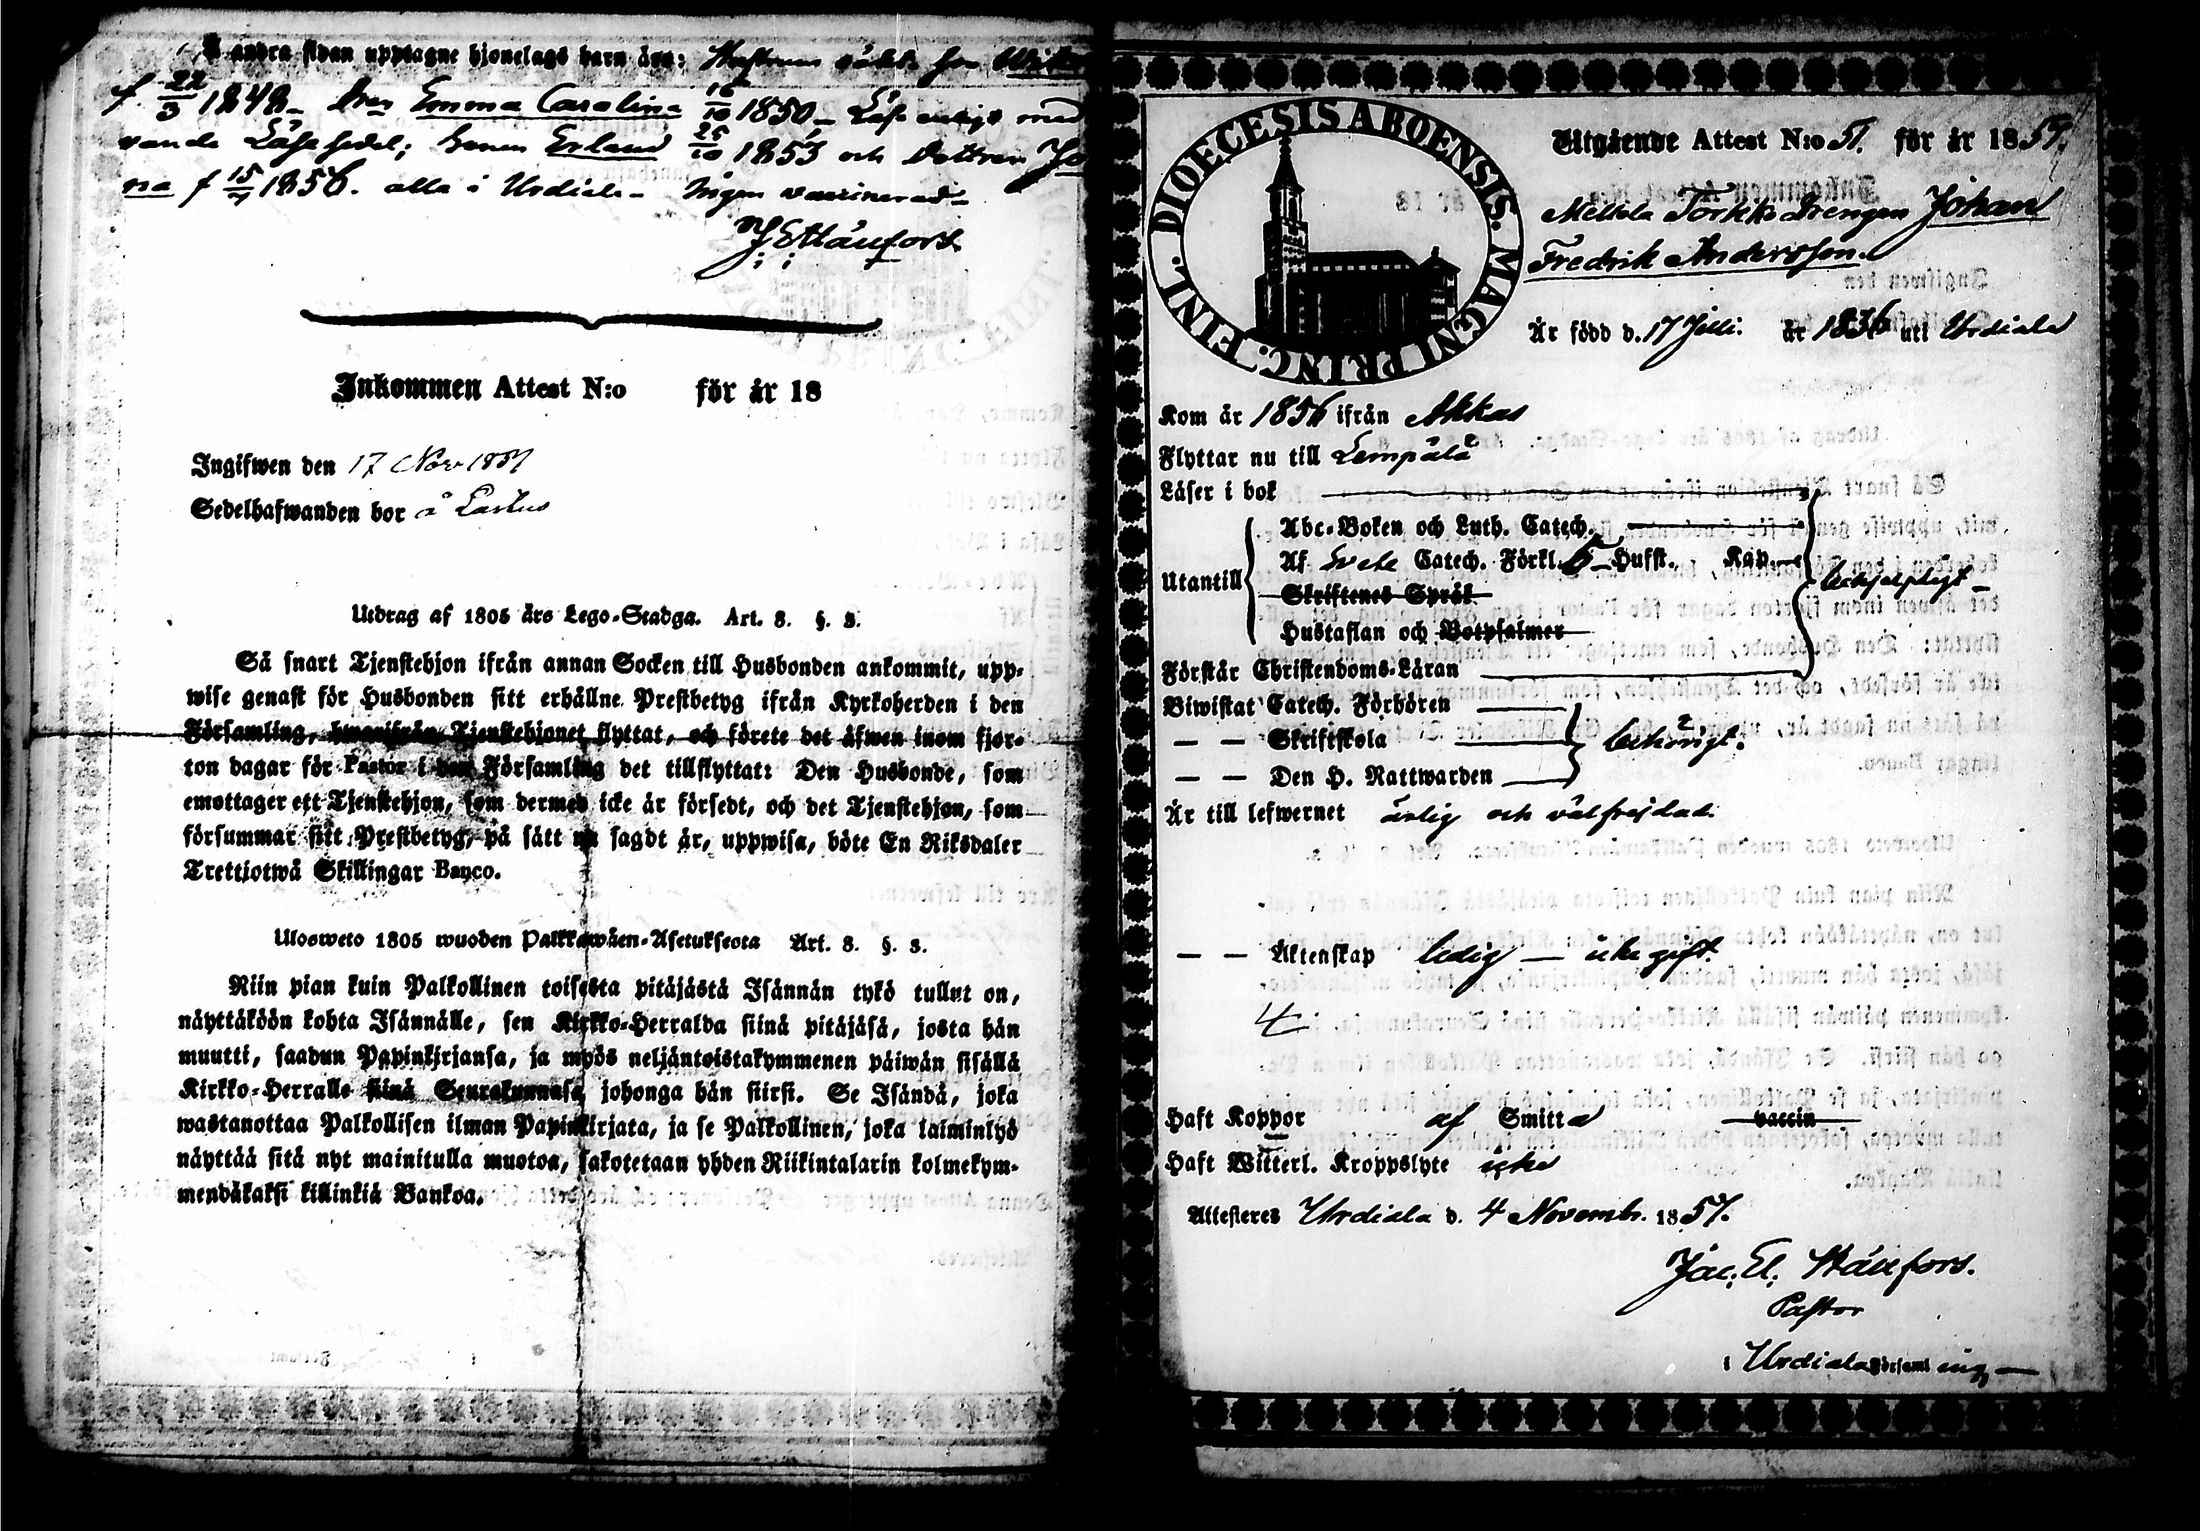 å andra sidan upptagne hjonelags barn äro:
f. 22/3 1848 Emma Carolina 16/10 1850 Läse enligt med
Läsesedel; Sonen Erland 25/10 1853 och Dottren Jo
na f 15/ 1856. alla i Urdiala Ingen vaccinerad
Inkommen Attest N:o för år 18
Ingifwen den 17 Nov 1857
Sedelhafwanden bor å
Utdrag af 1805 års Lego-Stadga. Art. 8. §. 3.
Så snart Tjenstehjon ifrån annan Socken till Husbonden ankommit, upp-
wise genast för Husbonden sitt erhållne Prestbetyg ifrån Kyrkoherden i den
Församling, hwarifrån Tjenstehjonet flyttat, och förete det äfwen inom fjor-
ton dagar för Pastor i den Församling det tillflyttat: Den Husbonde, som
emottager ett Tjenstehjon, som dermed icke är försedt, och det Tjenstehjon, som
försummar sitt Prestbetyg, på sätt nu sagdt är, uppwisa, böte En Riksdaler
Trettiotwå Skillingar Banco.
Ulosweto 1805 wuoden Palkkawäen-Asetuksesta Art. 8. §. 3.
Niin pian kuin Palkollinen toisesta pitäjästä Isännän tykö tullut on,
näyttäköön kohta Isännälle, sen Kirkko-Herralda siinä pitäjäsä, josta hän
muutti, saadun Papinkirjansa, ja myös neljäntoistakymmenen päiwän sisällä
Kirkko-Herralle siinä Seurakunnasa, johonga hän siirsi. Se Isändä, joka
wastanottaa Palkollisen ilman Papinkirjata, ja se Palkollinen, joka laiminlyö
näyttää sitä nyt mainitulla muotoa, sakotetaan yhden Riikintalarin kolmekym-
mendäkaksi killinkiä Bankoa.
DIOECESIS ABOENSIS. MAGNI PRINC. FINL.
Utgående Attest N:o 51. för år 1857.
Mellola Torkko Drengen Johan
Fredrik Andersson.
Är född d. 17 Juli. år 1836 uti Urdiala
Kom år 1856 ifrån Akkas
Flyttar nu till Lempälä
Läser i bok
Utantill
Abc-Boken och Luth. Catech.
Af Svebe Catech. Förkl. 5 Hufst. Kap.
Skriftenes Språk
Hustaflan och Botpsalmer
behjelpligt
Förstår Christendoms-Läran
Biwistat Catech. Förhören
— — Skriftskola
— — Den H. Nattwarden
behörigt.
Är till lefwernet ärlig och välfrejdad.
— — Äktenskap ledig — icke gift.
4
Haft Koppor af Smitta vaccin
Haft Witterl. Kroppslyte icke
Attesteres Urdiala d. 4 Novembr. 1857.
Jac. El. Stäufors.
Pastor
i Urdiala Församling